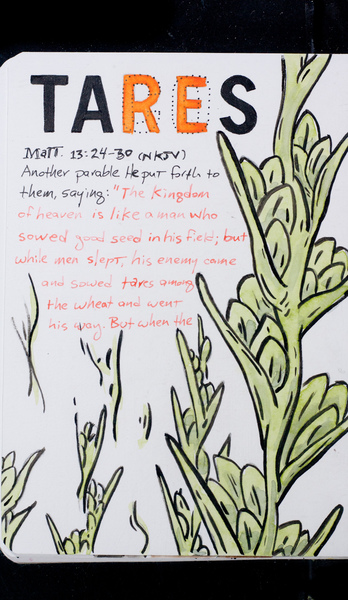 TARES
Matt. 13:24-30 (NKJV)
Another parable He put forth to
them, saying: "The Kingdom
of heaven is like a man who
sowed good seed in his field; but
while men slept, his enemy came
and sowed tares among
the wheat and went
his way. But when the